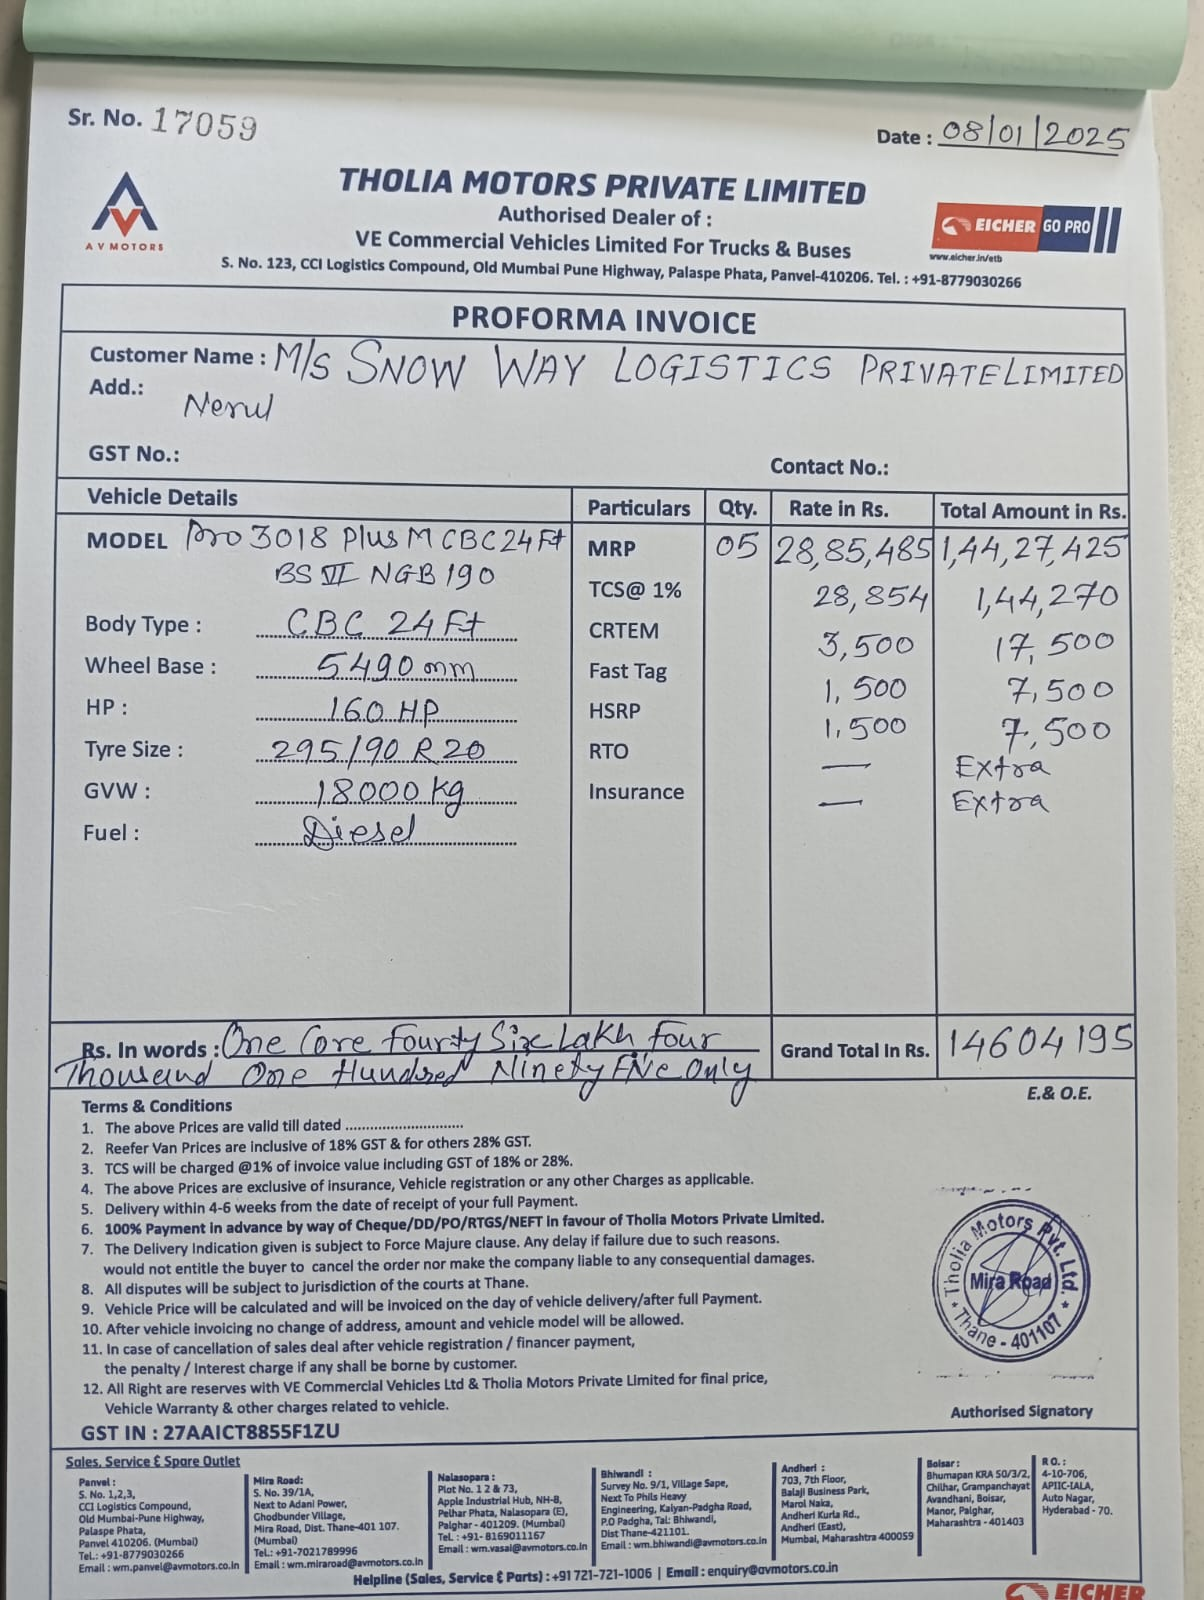 Sr. No. 17059
Date : 08/01/2025
THOLIA MOTORS PRIVATE LIMITED
Authorised Dealer of :
VE Commercial Vehicles Limited For Trucks & Buses
S. No. 123, CCI Logistics Compound, Old Mumbai Pune Highway, Palaspe Phata, Panvel-410206. Tel. : +91-8779030266
A V MOTORS
EICHER GO PRO
www.eicher.in/etb
PROFORMA INVOICE
Customer Name : M/s SNOW WAY LOGISTICS PRIVATE LIMITED
Add.: Nerul
GST No.:
Contact No.:
Vehicle Details Particulars Qty. Rate in Rs. Total Amount in Rs.
MODEL Pro 3018 Plus M CBC 24 Ft MRP 05 28,85,485 1,44,27,425
BS VI NGB 190
TCS@ 1% 28,854 1,44,270
Body Type : CBC 24 Ft CRTEM 3,500 17,500
Wheel Base : 5490 mm Fast Tag 1,500 7,500
HP : 160 HP HSRP 1,500 7,500
Tyre Size : 295/90 R 20 RTO — Extra
GVW : 18000 kg Insurance — Extra
Fuel : Diesel
Rs. In words : One Core Fourty Six Lakh Four
Thousand One Hundred Ninety Five Only
Grand Total In Rs. 14604195
E.& O.E.
Terms & Conditions
1. The above Prices are valid till dated ..............................
2. Reefer Van Prices are inclusive of 18% GST & for others 28% GST.
3. TCS will be charged @1% of invoice value including GST of 18% or 28%.
4. The above Prices are exclusive of insurance, Vehicle registration or any other Charges as applicable.
5. Delivery within 4-6 weeks from the date of receipt of your full Payment.
6. 100% Payment in advance by way of Cheque/DD/PO/RTGS/NEFT in favour of Tholia Motors Private Limited.
7. The Delivery Indication given is subject to Force Majure clause. Any delay if failure due to such reasons.
would not entitle the buyer to cancel the order nor make the company liable to any consequential damages.
8. All disputes will be subject to jurisdiction of the courts at Thane.
9. Vehicle Price will be calculated and will be invoiced on the day of vehicle delivery/after full Payment.
10. After vehicle invoicing no change of address, amount and vehicle model will be allowed.
11. In case of cancellation of sales deal after vehicle registration / financer payment,
the penalty / Interest charge if any shall be borne by customer.
12. All Right are reserves with VE Commercial Vehicles Ltd & Tholia Motors Private Limited for final price,
Vehicle Warranty & other charges related to vehicle.
Tholia Motors Pvt. Ltd.
Mira Road
* Thane - 401107 *
Authorised Signatory
GST IN : 27AAICT8855F1ZU
Sales, Service & Spare Outlet
Panvel :
S. No. 1,2,3,
CCI Logistics Compound,
Old Mumbai-Pune Highway,
Palaspe Phata,
Panvel 410206. (Mumbai)
Tel.: +91-8779030266
Email : wm.panvel@avmotors.co.in
Mira Road:
S. No. 39/1A,
Next to Adani Power,
Ghodbunder Village,
Mira Road, Dist. Thane-401 107.
(Mumbai)
Tel.: +91-7021789996
Email : wm.miraroad@avmotors.co.in
Nalasopara :
Plot No. 1 2 & 73,
Apple Industrial Hub, NH-8,
Pelhar Phata, Nalasopara (E),
Palghar - 401209. (Mumbai)
Tel. : +91- 8169011167
Email : wm.vasai@avmotors.co.in
Bhiwandi :
Survey No. 9/1, Village Sape,
Next To Phils Heavy
Engineering, Kalyan-Padgha Road,
P.O Padgha, Tal: Bhiwandi,
Dist Thane-421101.
Email : wm.bhiwandi@avmotors.co.in
Andheri :
703, 7th Floor,
Balaji Business Park,
Marol Naka,
Andheri Kurla Rd.,
Andheri (East),
Mumbai, Maharashtra 400059
Boisar :
Bhumapan KRA 50/3/2,
Chilhar, Grampanchayat
Avandhani, Boisar,
Manor, Palghar,
Maharashtra - 401403
R O. :
4-10-706,
APIIC-IALA,
Auto Nagar,
Hyderabad - 70.
Helpline (Sales, Service & Parts) : +91 721-721-1006 | Email : enquiry@avmotors.co.in
EICHER